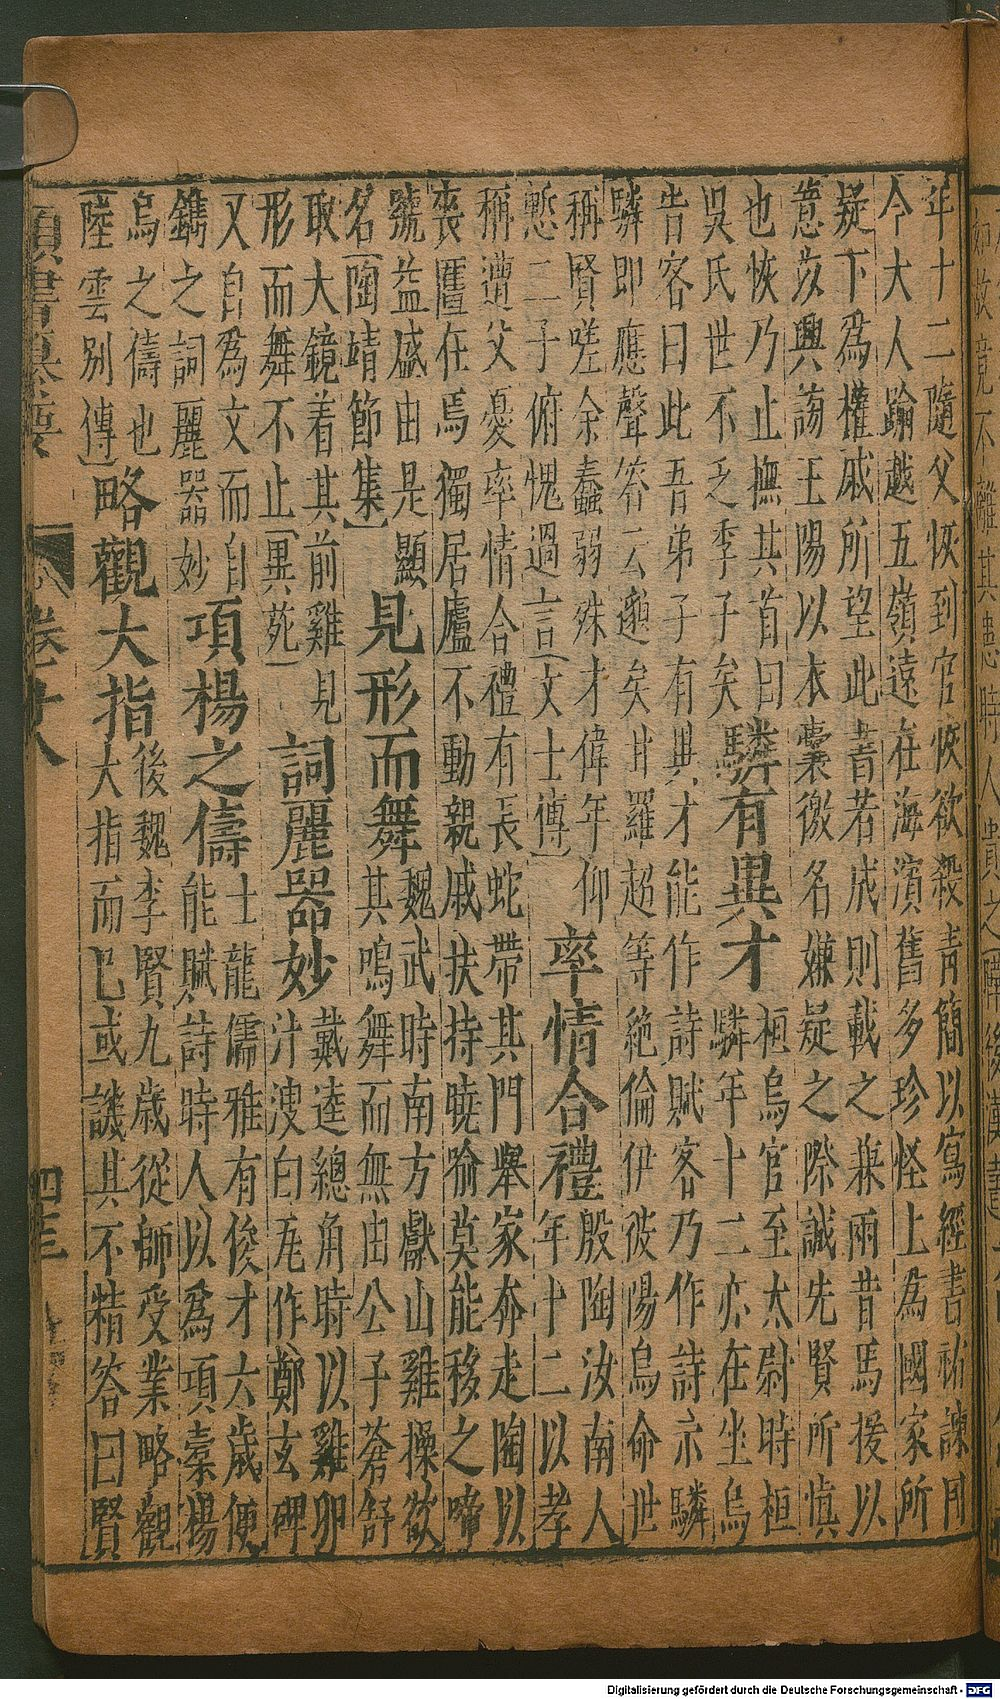 年十二隨父恢到官恢欲殺青簡以寫經書祐諫曰
今大人踰越五嶺遠在海濱舊多珍怪上為國家所
疑下為權戚所望此書若成則載之兼兩昔馬援以
薏苡興謗王陽以衣囊徼名嫌疑之際誠先賢所慎
也恢乃止撫其首曰
吳氏世不乏季子矣
驎有異才
桓烏官至太尉時桓
驎年十二亦在坐烏
告客曰此吾弟子有異才能作詩賦客乃作詩示驎
驎即應聲答云邈矣甘羅超等絶倫伊彼陽烏命世
稱賢嗟余蠢弱殊才偉年仰
慙二子俯愧過言〔文士傳〕
率情合禮
殷陶汝南人
年十二以孝
稱遭父憂率情合禮有長蛇帶其門舉家奔走陶以
喪匶在焉獨居廬不動親戚扶持曉喻莫能移之啼
號益盛由是顯
名〔陶靖節集〕
見形而舞
魏武時南方獻山雞操欲
其鳴舞而無由公子蒼舒
取大鏡着其前雞見
形而舞不止〔異苑〕
詞麗器妙
戴逵總角時以雞卵
汁溲白瓦作鄭玄碑
又自為文而自
鐫之詞麗器妙
項楊之儔
士龍儒雅有俊才六歲便
能賦詩時人以為項槖楊
烏之儔也
〔陸雲别傳〕
略觀大指
後魏李賢九歲從師受業略觀
大指而已或譏其不精答曰賢
卷十八
四十三
如故竟不
離其患時人貴之
Digitalisierung gefördert durch die Deutsche Forschungsgemeinschaft - DFG